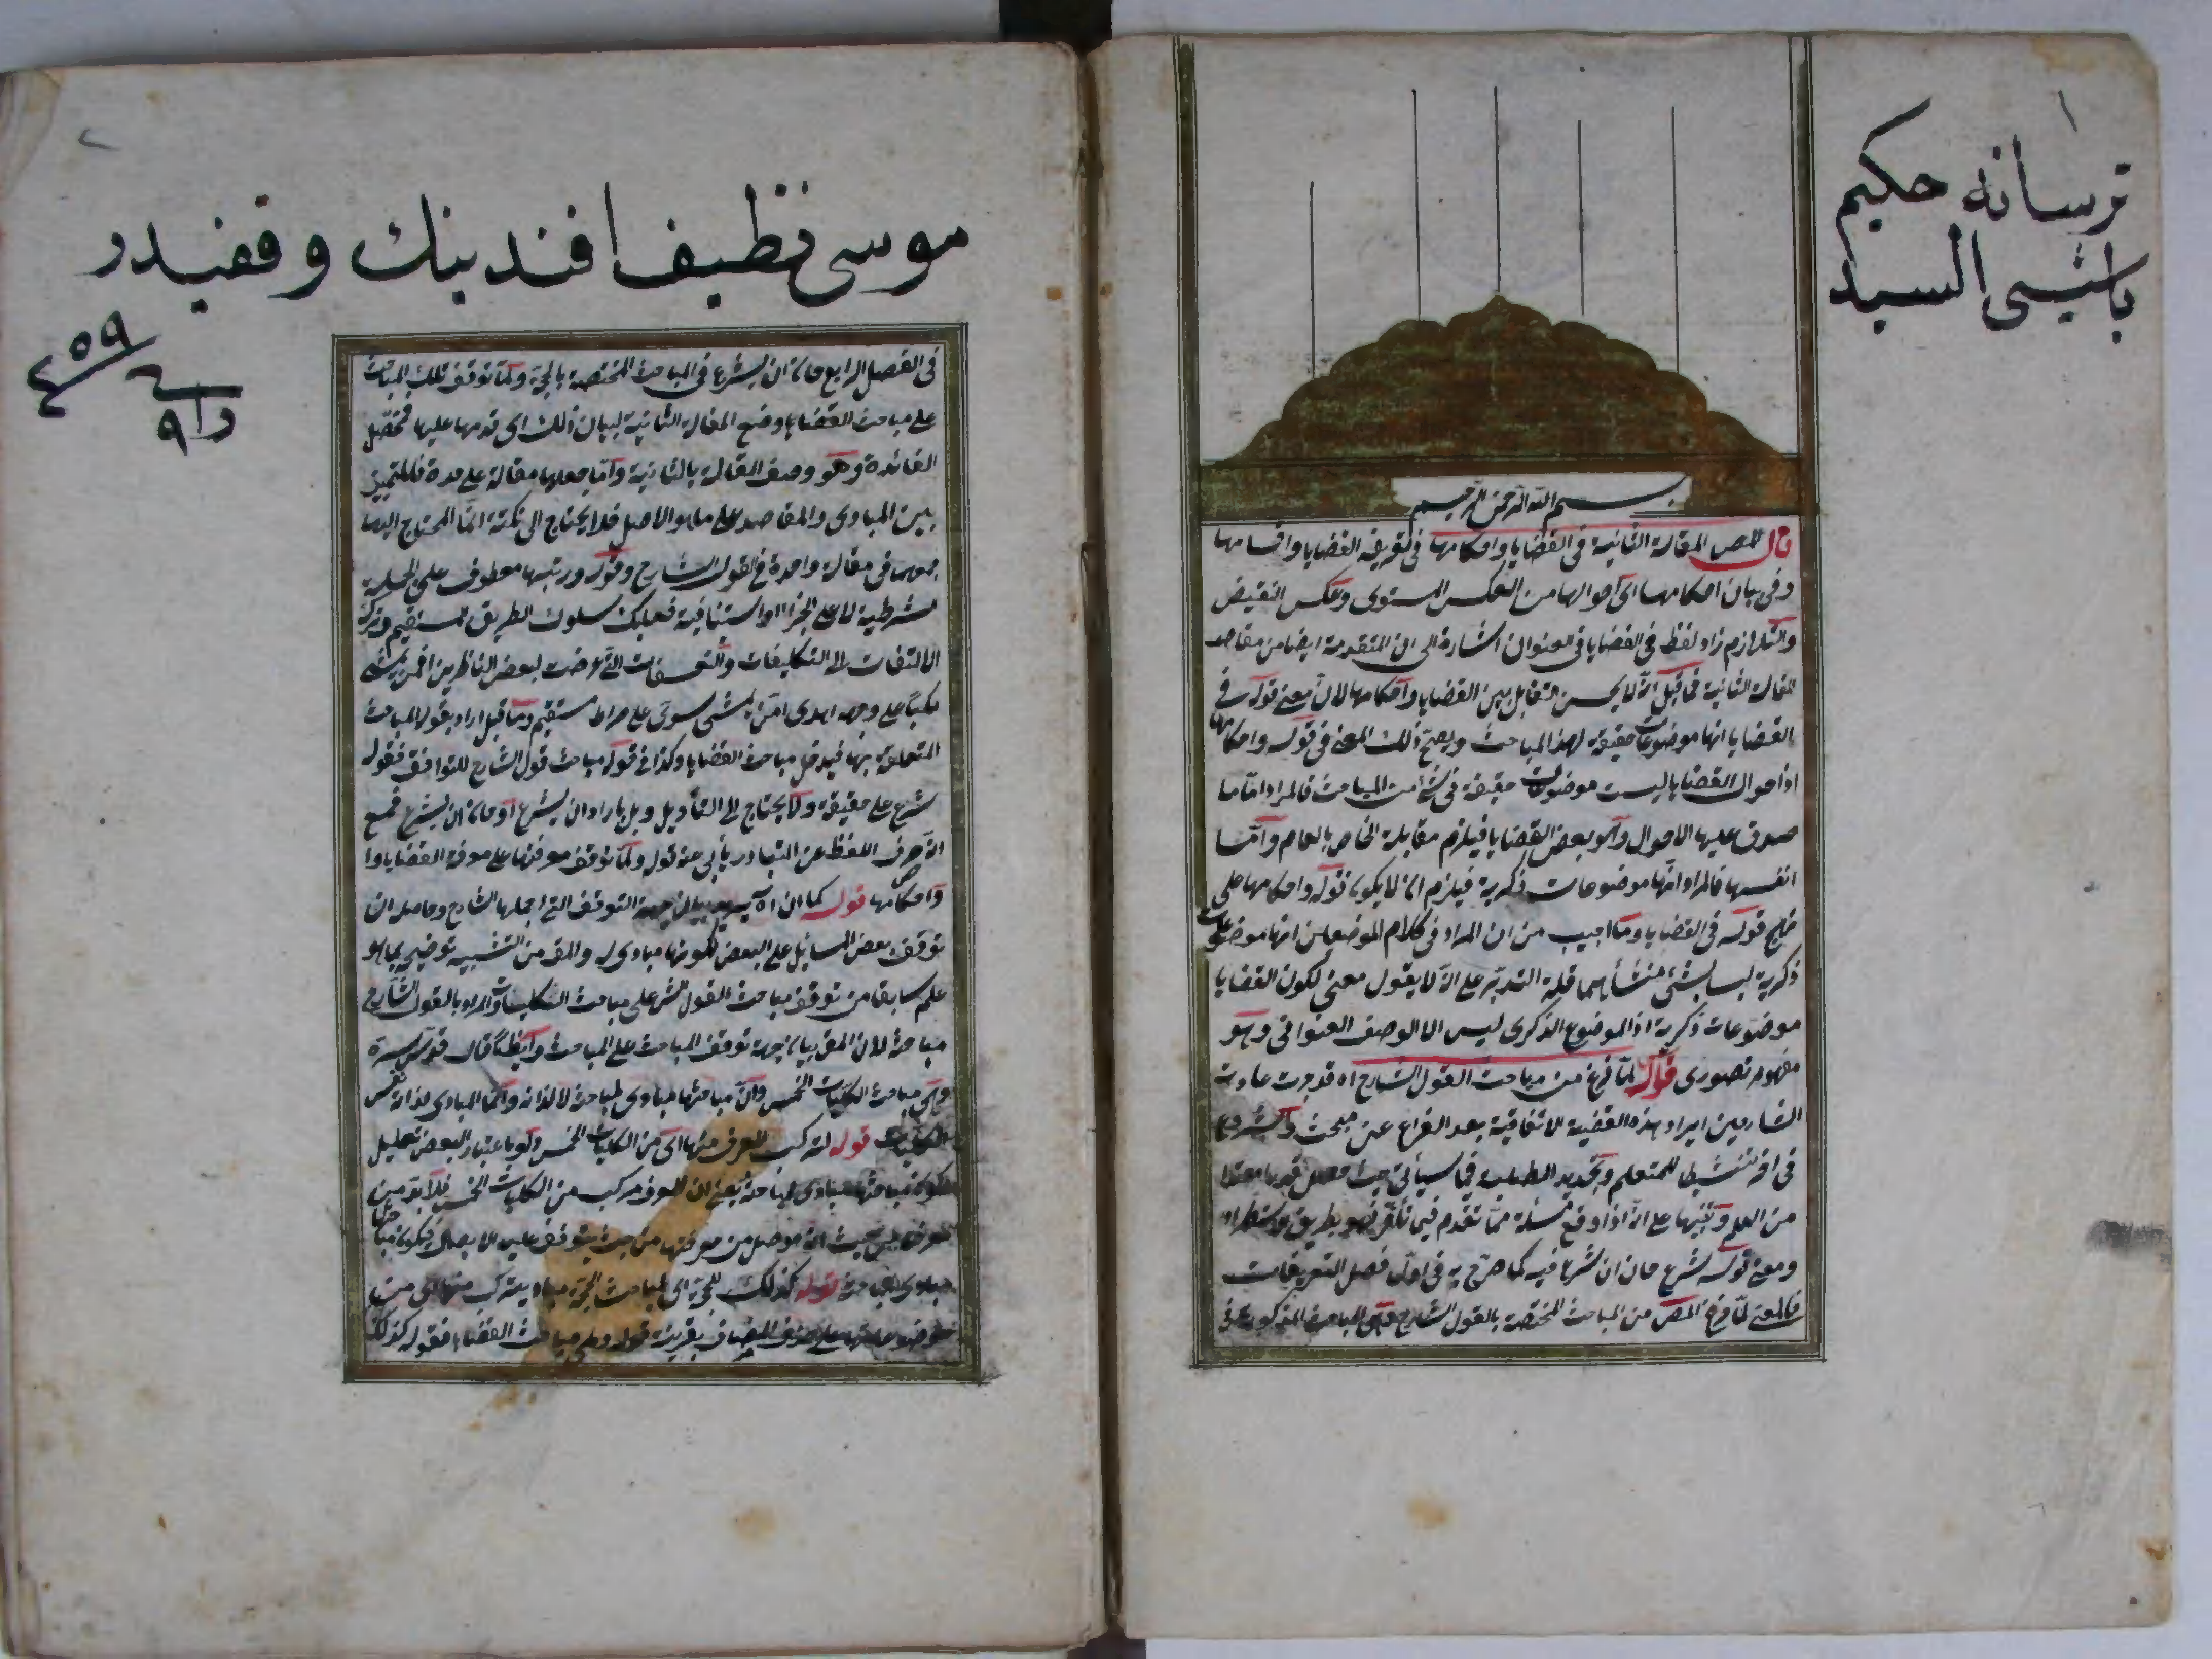 ١
ترسانه حكيم
باشى السيد
بسم الله الرحمن الرحيم
قال المص المقالة الثانية في القضايا واحكامها في تعريف القضايا واقسامها
وفي بيان احكامها اى احوالها من العكس المستوى وعكس النقيض
والتلازم زاد لفظ في القضايا في العنوان اشارة الى ان المتقدمة ايضا من مقاصد
المقالة الثانية فما قيل انه لا يحسن التقابل بين القضايا واحكامها لان معنى قوله في
القضايا انها موضوعات حقيقة لهذا المباحث ويصح ذلك المعنى في قوله واحكامها
اذ احوال القضايا ليست موضوعات حقيقة في شئ من المباحث فالمراد اما ما
صدق عليها الاحوال وهو بعض القضايا فيلزم مقابلة الخاص بالعام واما
انفسها فالمراد انها موضوعات ذكرية فيلزم ان لا يكون قوله واحكامها على
قوله في القضايا وما اجيب من ان المراد في كلام الموضعين انها موضوعات
ذكرية ليس بشئ منشأهما قلة التدبر على انه لا يقول معنى لكون القضايا
موضوعات ذكرية اذ الموضوع الذكرى ليس الا الوصف العنوانى وهو
مفهوم تصورى قوله لما فرغ من مباحث القول الشارح اه قد جرت عادت
الشارحين ايراد هذه القضية الاتفاقية بعد الفراغ عن مبحث والشروع
في اخر تنشيطا للمتعلم وتجديد الطلبه فيما سيأتى حيث حصل قدرا معتدا
من العلم وتنبيها على انه اذا وقع مسئلة مما تقدم فيما تأخر فهو بطريق استطراد
ومعنى قوله شرع حان ان شرع فيه كما صرح به في اول فصل التعريفات
فالمعنى لما فرغ المص من المباحث المختصة بالقول الشارح وهى المباحث المذكورة في
٢
موسى نظيف افندينك وقفيدر
٤٥٩
في الفصل الرابع حان ان يشرع في المباحث المختصة بالحجة ولما توقف تلك المباحث
على مباحث القضايا وضع المقالة الثانية لبيان ذلك اى قدمها عليها فمحصل
الفائدة وهو وصف المقالة بالثانية واما جعلها مقالة على حدة فللتمييز
بين المبادى والمقاصد على ما هو الاصل فلا يحتاج الى نكتة انما المحتاج اليها
جمعهما في مقالة واحدة في القول الشارح وقوله ورتبها معطوف على الجملة
الشرطية لا على الجزاء او استنافية فعليك سلوك الطريق المستقيم وترك
الالتفات الى التكليفات والتعسفات التى عرضت لبعض الناظرين افمن يمشى
مكبا على وجهه اهدى امن يمشى سويا على صراط مستقيم وما قيل اراد بقوله المباحث
المتعلقة بها فيدخل مباحث القضايا وكذا في قوله مباحث قول الشارح للتوافق فقوله
شرع على حقيقته ولا يحتاج الى التأويل وبل باراد ان يشرع او حان ان يشرع فمع
انه صرف اللفظ عن المتبادر يأبى عنه قوله ولما توقف معرفتها على معرفة القضايا وا
واحكامها قوله كما ان اه بيان جهة التوقف التى اجملها الشارح وحاصله ان
توقف بعض المسائل على البعض لكونها مبادى له والمقصود من التشبيه توضيحه بما هو
علم سابقا من توقف مباحث القول الشارح على مباحث الكليات والمراد بالقول الشارح
مباحثه لان المقصود بيان جهة توقف المباحث على المباحث وايضا قال قدس سره
وهى مباحث الكليات الخمس وان مباحثها مبادى لمباحثه لا لذاته وانما المبادى لذاته نفس
الكليات قوله لتركب المعرف منها اى من الكليات الخمس ولو باعتبار البعض تعليل
لكون مباحثها مبادى لمباحثه يعنى ان المعرف مركب من الكليات الخمس فلا بد من
مبادى لمباحثه قوله كذلك للحجة اى لمباحث الحجة مبادى يتركب منها اى من
على حذف المضاف بقرينة قوله وهى مباحث القضايا فقوله كذلك